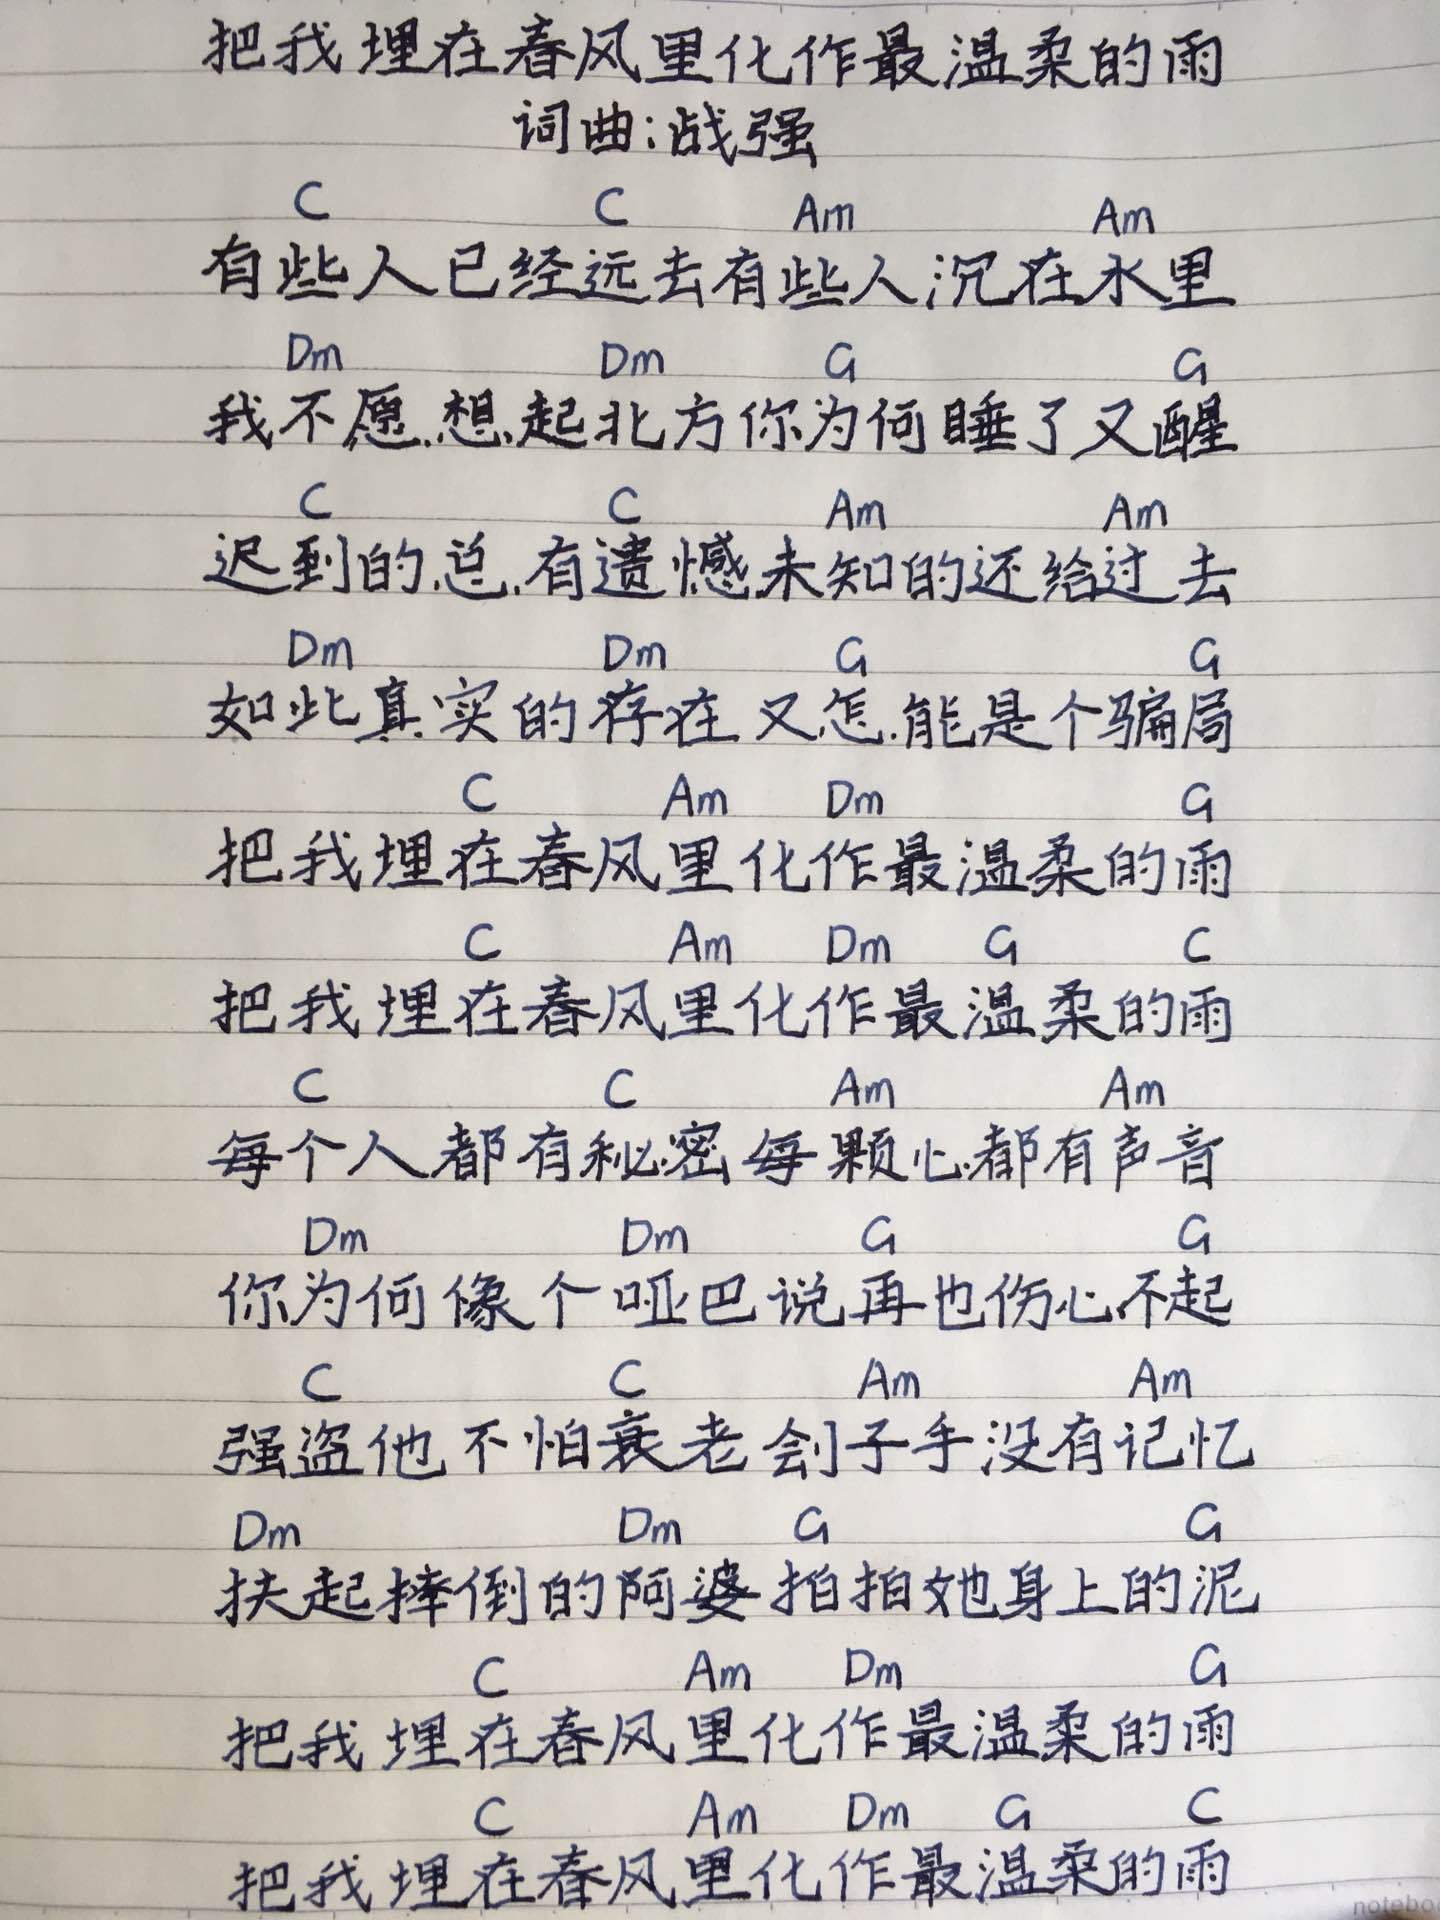 把我埋在春风里化作最温柔的雨
词曲:战强
C C Am Am
有些人已经远去有些人沉在水里
Dm Dm G G
我不愿想起北方你为何睡了又醒
C C Am Am
迟到的总有遗憾未知的还给过去
Dm Dm G G
如此真实的存在又怎能是个骗局
C Am Dm G
把我埋在春风里化作最温柔的雨
C Am Dm G C
把我埋在春风里化作最温柔的雨
C C Am Am
每个人都有秘密每颗心都有声音
Dm Dm G G
你为何像个哑巴说再也伤心不起
C C Am Am
强盗他不怕衰老刽子手没有记忆
Dm Dm G G
扶起摔倒的阿婆拍拍她身上的泥
C Am Dm G
把我埋在春风里化作最温柔的雨
C Am Dm G C
把我埋在春风里化作最温柔的雨